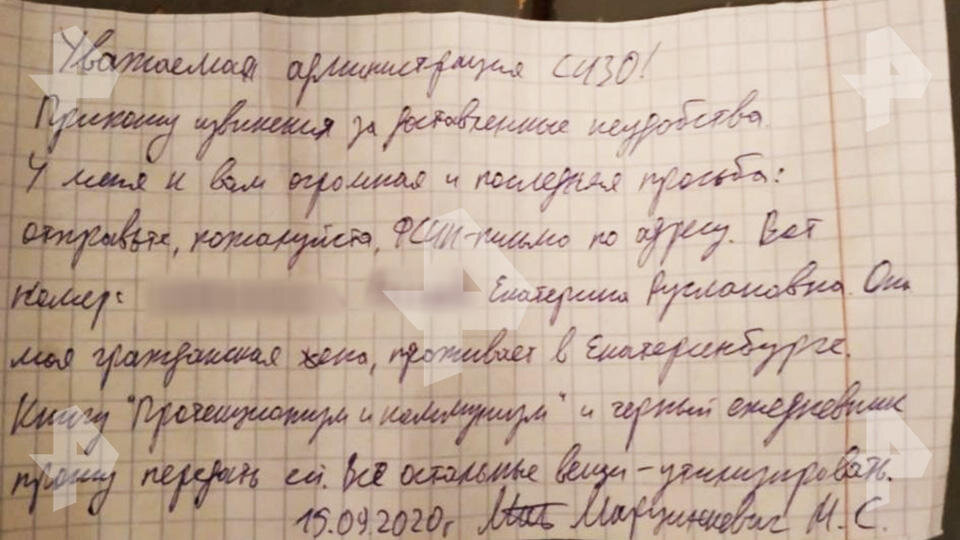 Уважаемая администрация СИЗО!
Приношу извинения за доставленные неудобства.
У меня к вам огромная и последняя просьба:
отправьте, пожалуйста, ФСИН-письмо по адресу. Вот
номер: Екатерина Руслановна. Она
моя гражданская жена, проживает в Екатеринбурге.
Книгу "Протекционизм и коммунизм" и черный ежедневник
прошу передать ей. Все остальные вещи – утилизировать.
15.09.2020г. Марцинкевич М. С.